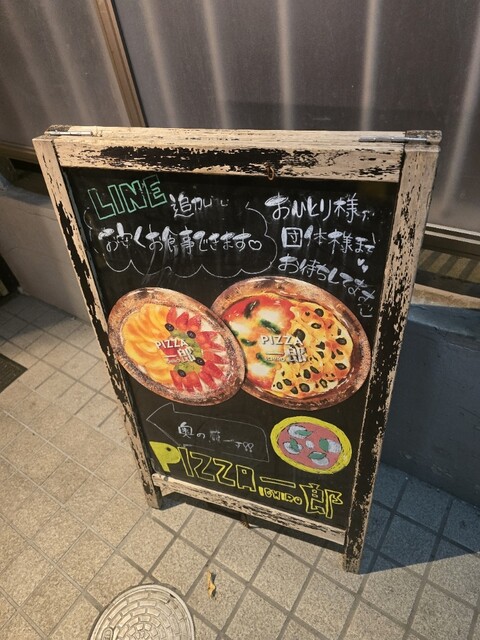 LINE 追加して
お安くお食事できます
おひとり様から
団体様まで
お待ちしてます
PIZZA
一郎
PIZZA
一郎
ICHIRO
PIZZA一郎
ICHIRO